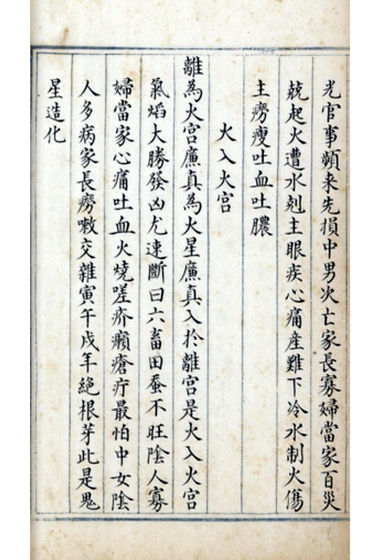 光官事頻来先損中男次亡家長寡婦當家百災
兢起火遭水剋主眼疾心痛産難下冷水制火傷
主癆瘦吐血吐膿
火入火宫
離為火宫廉真為火星廉真入於離宫是火入火宫
氣焰大勝發凶尤速斷曰六畜田蚕不旺陰人寡
婦當家心痛吐血火燒嗟疥癩瘡疔最怕中女陰
人多病家長癆嗽交雜寅午戌年絶根芽此是鬼
星造化